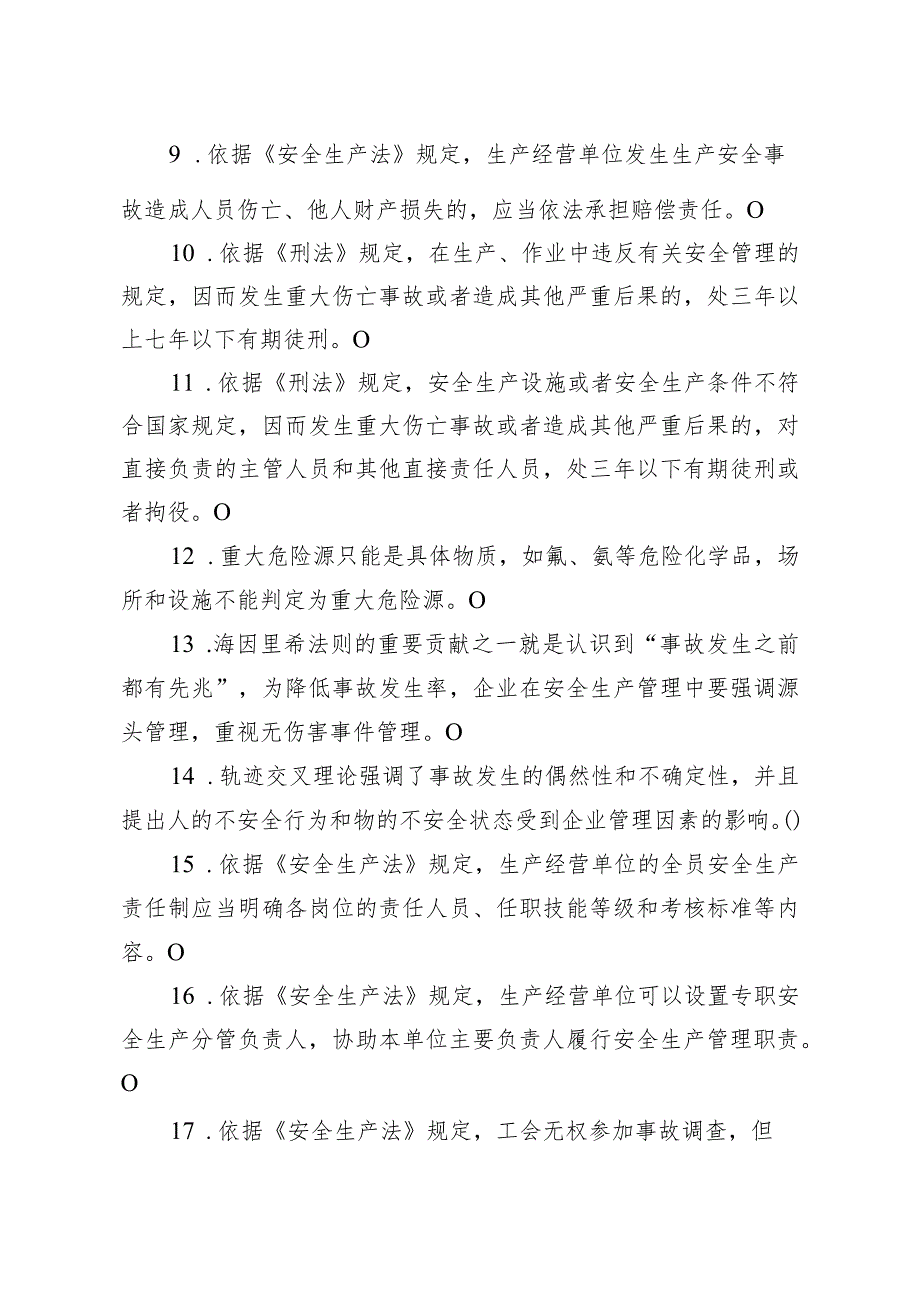 9 .依据《安全生产法》规定，生产经营单位发生生产安全事
故造成人员伤亡、他人财产损失的，应当依法承担赔偿责任。O
10 .依据《刑法》规定，在生产、作业中违反有关安全管理的
规定，因而发生重大伤亡事故或者造成其他严重后果的，处三年以
上七年以下有期徒刑。O
11 .依据《刑法》规定，安全生产设施或者安全生产条件不符
合国家规定，因而发生重大伤亡事故或者造成其他严重后果的，对
直接负责的主管人员和其他直接责任人员，处三年以下有期徒刑或
者拘役。O
12 .重大危险源只能是具体物质，如氟、氨等危险化学品，场
所和设施不能判定为重大危险源。O
13 .海因里希法则的重要贡献之一就是认识到“事故发生之前
都有先兆”，为降低事故发生率，企业在安全生产管理中要强调源
头管理，重视无伤害事件管理。O
14 .轨迹交叉理论强调了事故发生的偶然性和不确定性，并且
提出人的不安全行为和物的不安全状态受到企业管理因素的影响。()
15 .依据《安全生产法》规定，生产经营单位的全员安全生产
责任制应当明确各岗位的责任人员、任职技能等级和考核标准等内
容。O
16 .依据《安全生产法》规定，生产经营单位可以设置专职安
全生产分管负责人，协助本单位主要负责人履行安全生产管理职责。
O
17 .依据《安全生产法》规定，工会无权参加事故调查，但